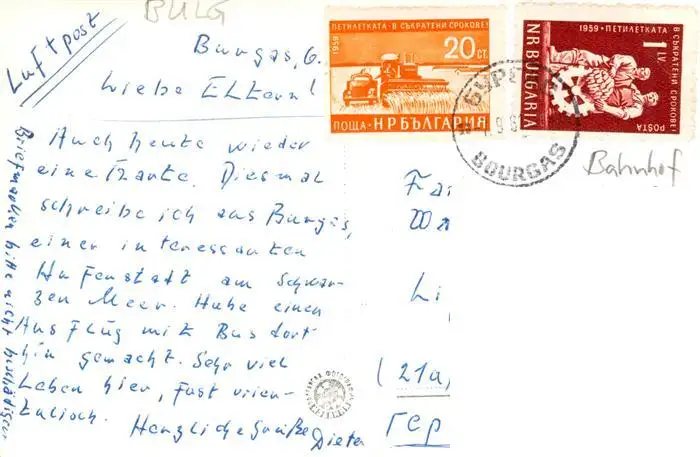 BULG
Luftpost
Burgas, 6.
Liebe Eltern!
Auch heute wieder
eine Karte. Diesmal
schreibe ich aus Burgas,
einer interessanten
Hafenstadt am Schwar-
zen Meer. Habe einen
Ausflug mit Bus dort
hin gemacht. Sehr viel
Leben hier, fast orien-
talisch. Herzliche Grüße
Dieter
Briefmarken bitte nicht beschädigen
ПЕТИЛЕТКАТА - В СЪКРАТЕНИ СРОКОВЕ!
1959
20 СТ.
ПОЩА НР БЪЛГАРИЯ
1959 - ПЕТИЛЕТКАТА В СЪКРАТЕНИ СРОКОВЕ!
1 LV.
NR BULGARIA
POSTA
БУРГ
BOURGAS
Bahnhof
Li
(21a,
ГЕР